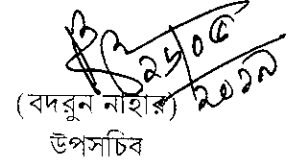 ২৬/০৫
২০১৯
(বদরুন নাহার)
উপসচিব